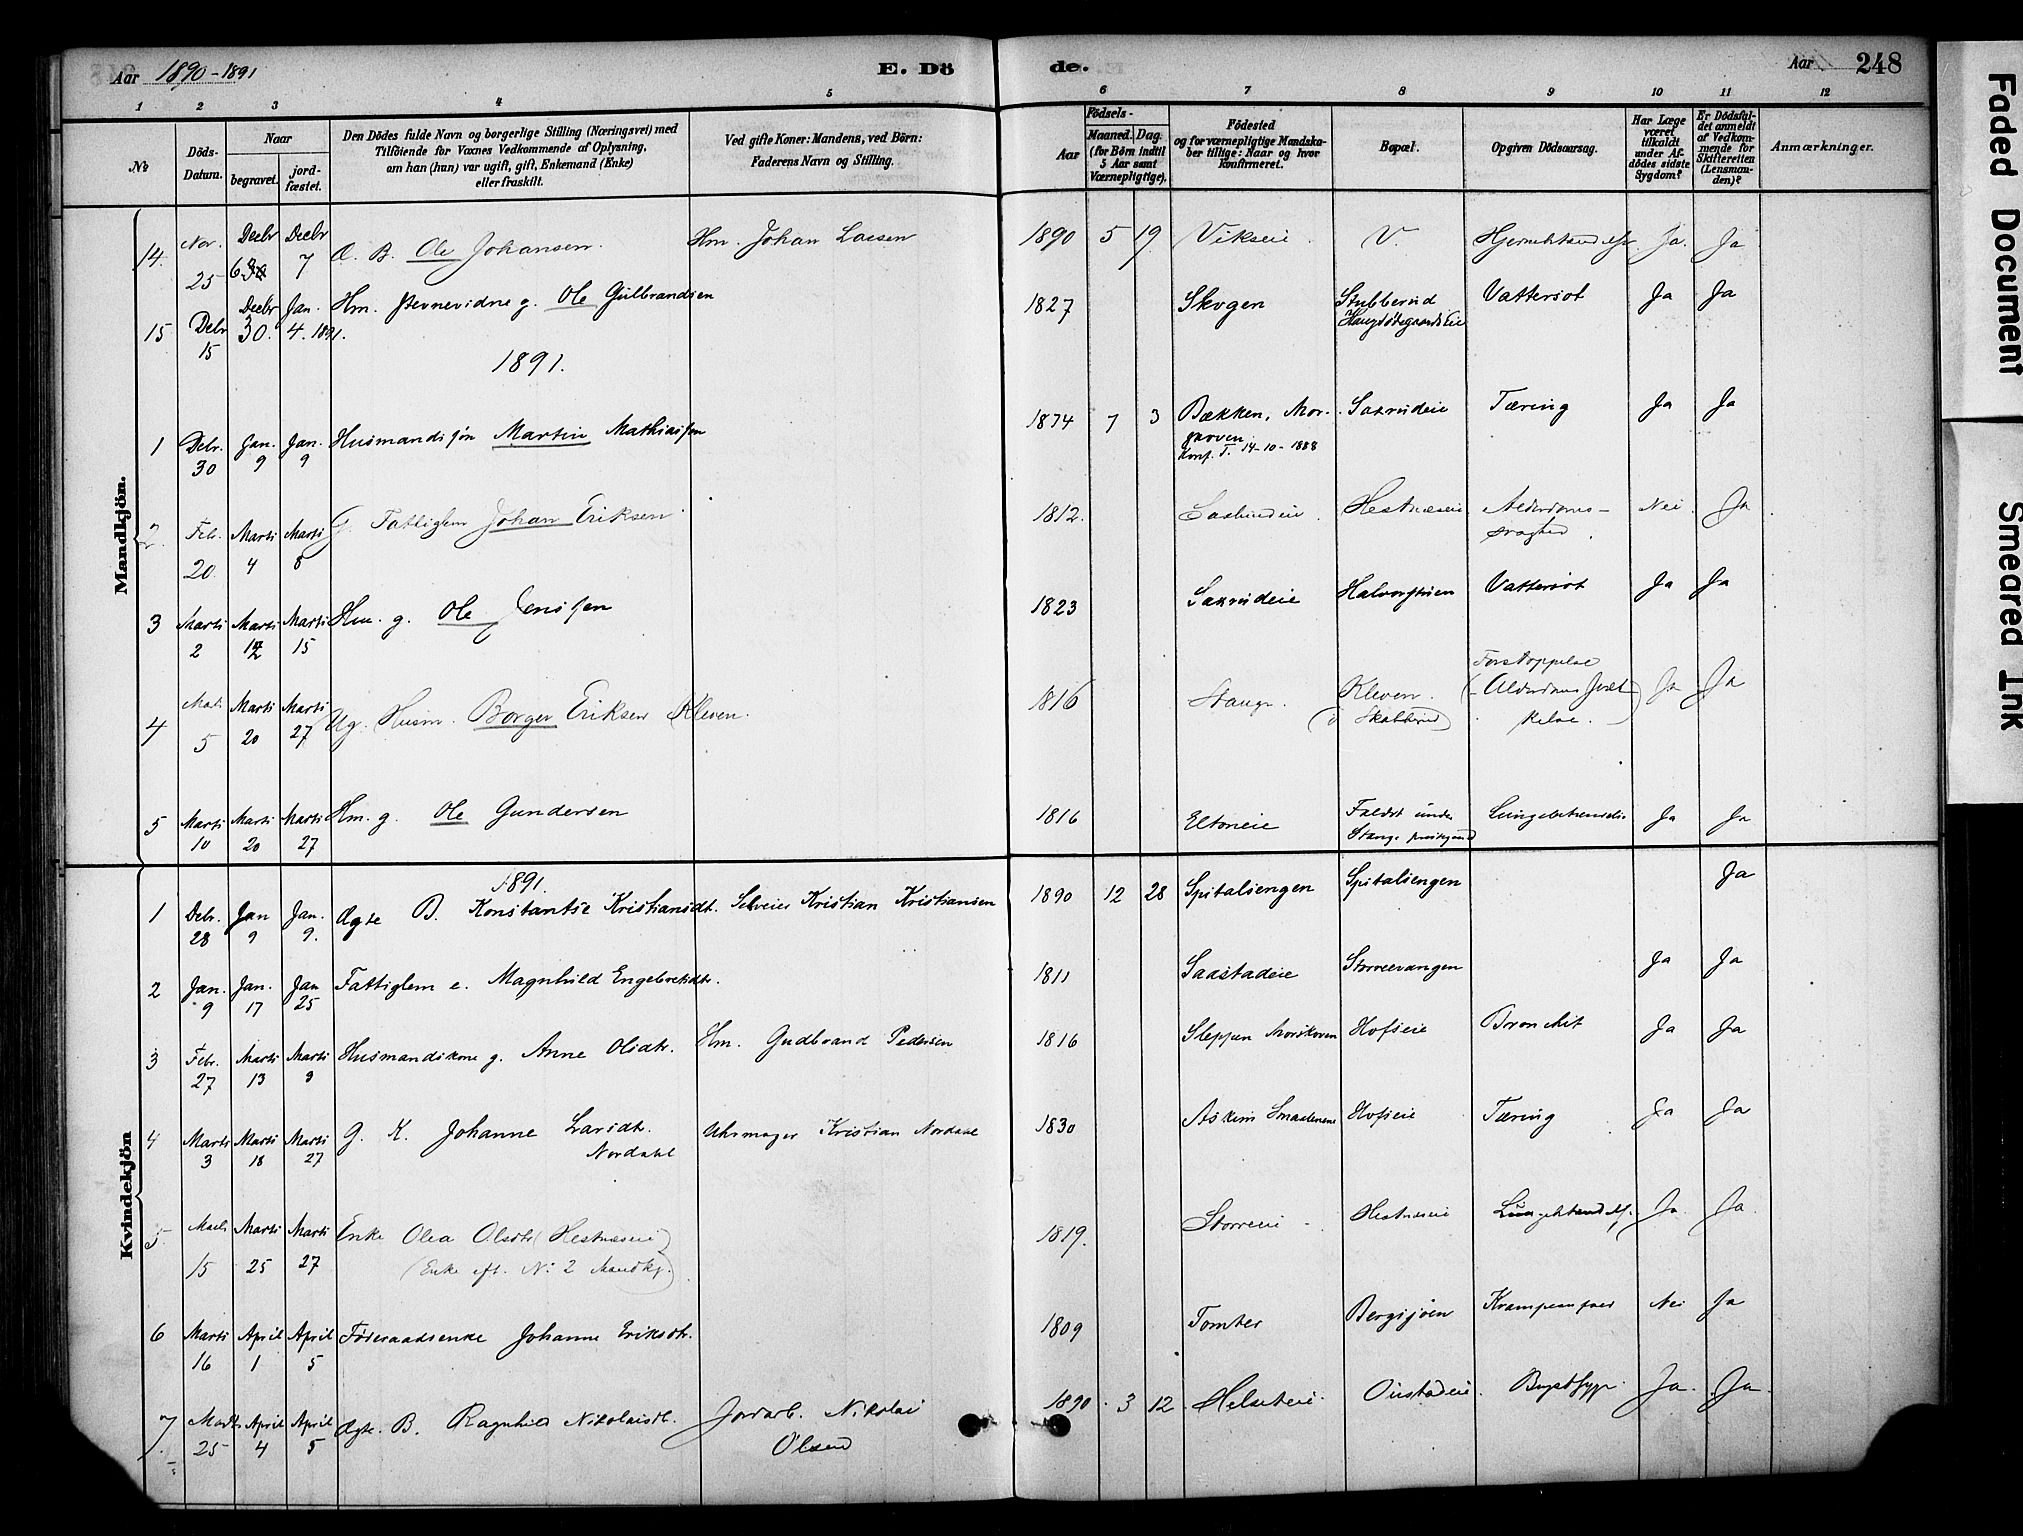 Aar 1890-1891
E. Dö de.
Aar 248
1 2 3 4 5 6 7 8 9 10 11 12
No
Döds-Datum.
Naar
begravet.
jord-fæstet.
Den Dödes fulde Navn og borgerlige Stilling (Næringsvei) med
Tilföiende for Voxnes Vedkommende af Oplysning,
om han (hun) var ugift, gift, Enkemand (Enke)
eller fraskilt.
Ved gifte Koner: Mandens, ved Börn:
Faderens Navn og Stilling.
Födsels-
Aar
Maaned. Dag.
(for Børn indtil
5 Aar samt
Værnepligtige).
Födested
og for værnepligtige Mandska-
ber tillige: Naar og hvor
konfirmeret.
Bopæl.
Opgiven Dödsaarsag.
Har Læge
været
tilkaldt
under Af-
dødes sidste
Sygdom?
Er Dödsfal-
det anmeldt
af Vedkom-
mende for
Skifteretten
(Lensman-
den)?
Anmærkninger.
Mandkjön.
14. Nov. 25 Decbr 6 Decbr 7 Æ. B. Ole Johansen. Hm. Johan Larsen 1890 5 19 Vikseie V. Ja. Ja
15 Debr 15 Decbr 30. Jan. 4. 1891. Hm. Stevnevidne g. Ole Gulbrandsen 1827 Skogen Stubberud Vattersot Ja Ja
1891.
1 Debr. 30 Jan. 9 Jan. 9 Husmandssøn Martin Mathiassen 1874 7 3 Bækken, Mor-
skoven Saxrudeie Tæring Ja Ja
Konf. T. 14-10-1888
2. Febr. 20. Marts 4 Marts 8 G. Fattiglem Johan Eriksen 1812. Hestnæseie Alderdoms-
svaghed. Nei. Ja
3 Marts 2 Marts 12 Marts 15 Hm. g. Ole Jenssen 1823 Saxrudeie Vattersot Ja Ja
4 Marts 5 Marts 20 Marts 27 Ug. Husm. Borger Eriksen Kleven. 1816 Stange. Kleven. Forstoppelse Ja Ja
5 Marts 10 Marts 20 Marts 27 Hm. g. Ole Gundersen 1816 Eltoneie Faldet under
Stange Ja Ja
Kvindekjön
1891.
1 Debr. 28 Jan 9 Jan. 9. Ægte B. Konstantse Kristiansdt. Selveier Kristian Kristiansen 1890 12 28 Spitalsengen Spitalsengen Ja
2 Jan. 9 Jan. 17 Jan 25 Fattiglem e. Magnhild Engebretsdtr. 1811 Saastadeie Ja Ja
3 Febr. 27 Marts 13 Marts Husmandskone g. Anne Olsdtr. Hm. Gudbrand Pedersen 1816 Sleppen Morskoven Hofseie Bronchit Ja Ja
4 Marts 3 Marts 18 Marts 27 G. K. Johanne Larsdtr.
Nordahl Uhrmager Kristian Nordahl 1830 Askim Smaalenene Hofseie Tæring Ja Ja
5 Marts 15 Marts 25 Marts 27 Enke Olea Olsdtr (Hestnæseie)
(Enke eft. No 2 Mandkj.) 1819. Hestnæseie Ja. Ja.
6 Marts 16 April 1 April 5 Føderaadsenke Johanne Eriksdtr. 1809 Tomter Bergsjøen Nei Ja
7. Marts 25 April 4 April 5 Ægte. B. Ragnhild Nikolaisdt. Jordarb. Nikolai
Olsen 1890. 3 12. Oustadeie. Ja. Ja.
Faded Document
Smeared Ink